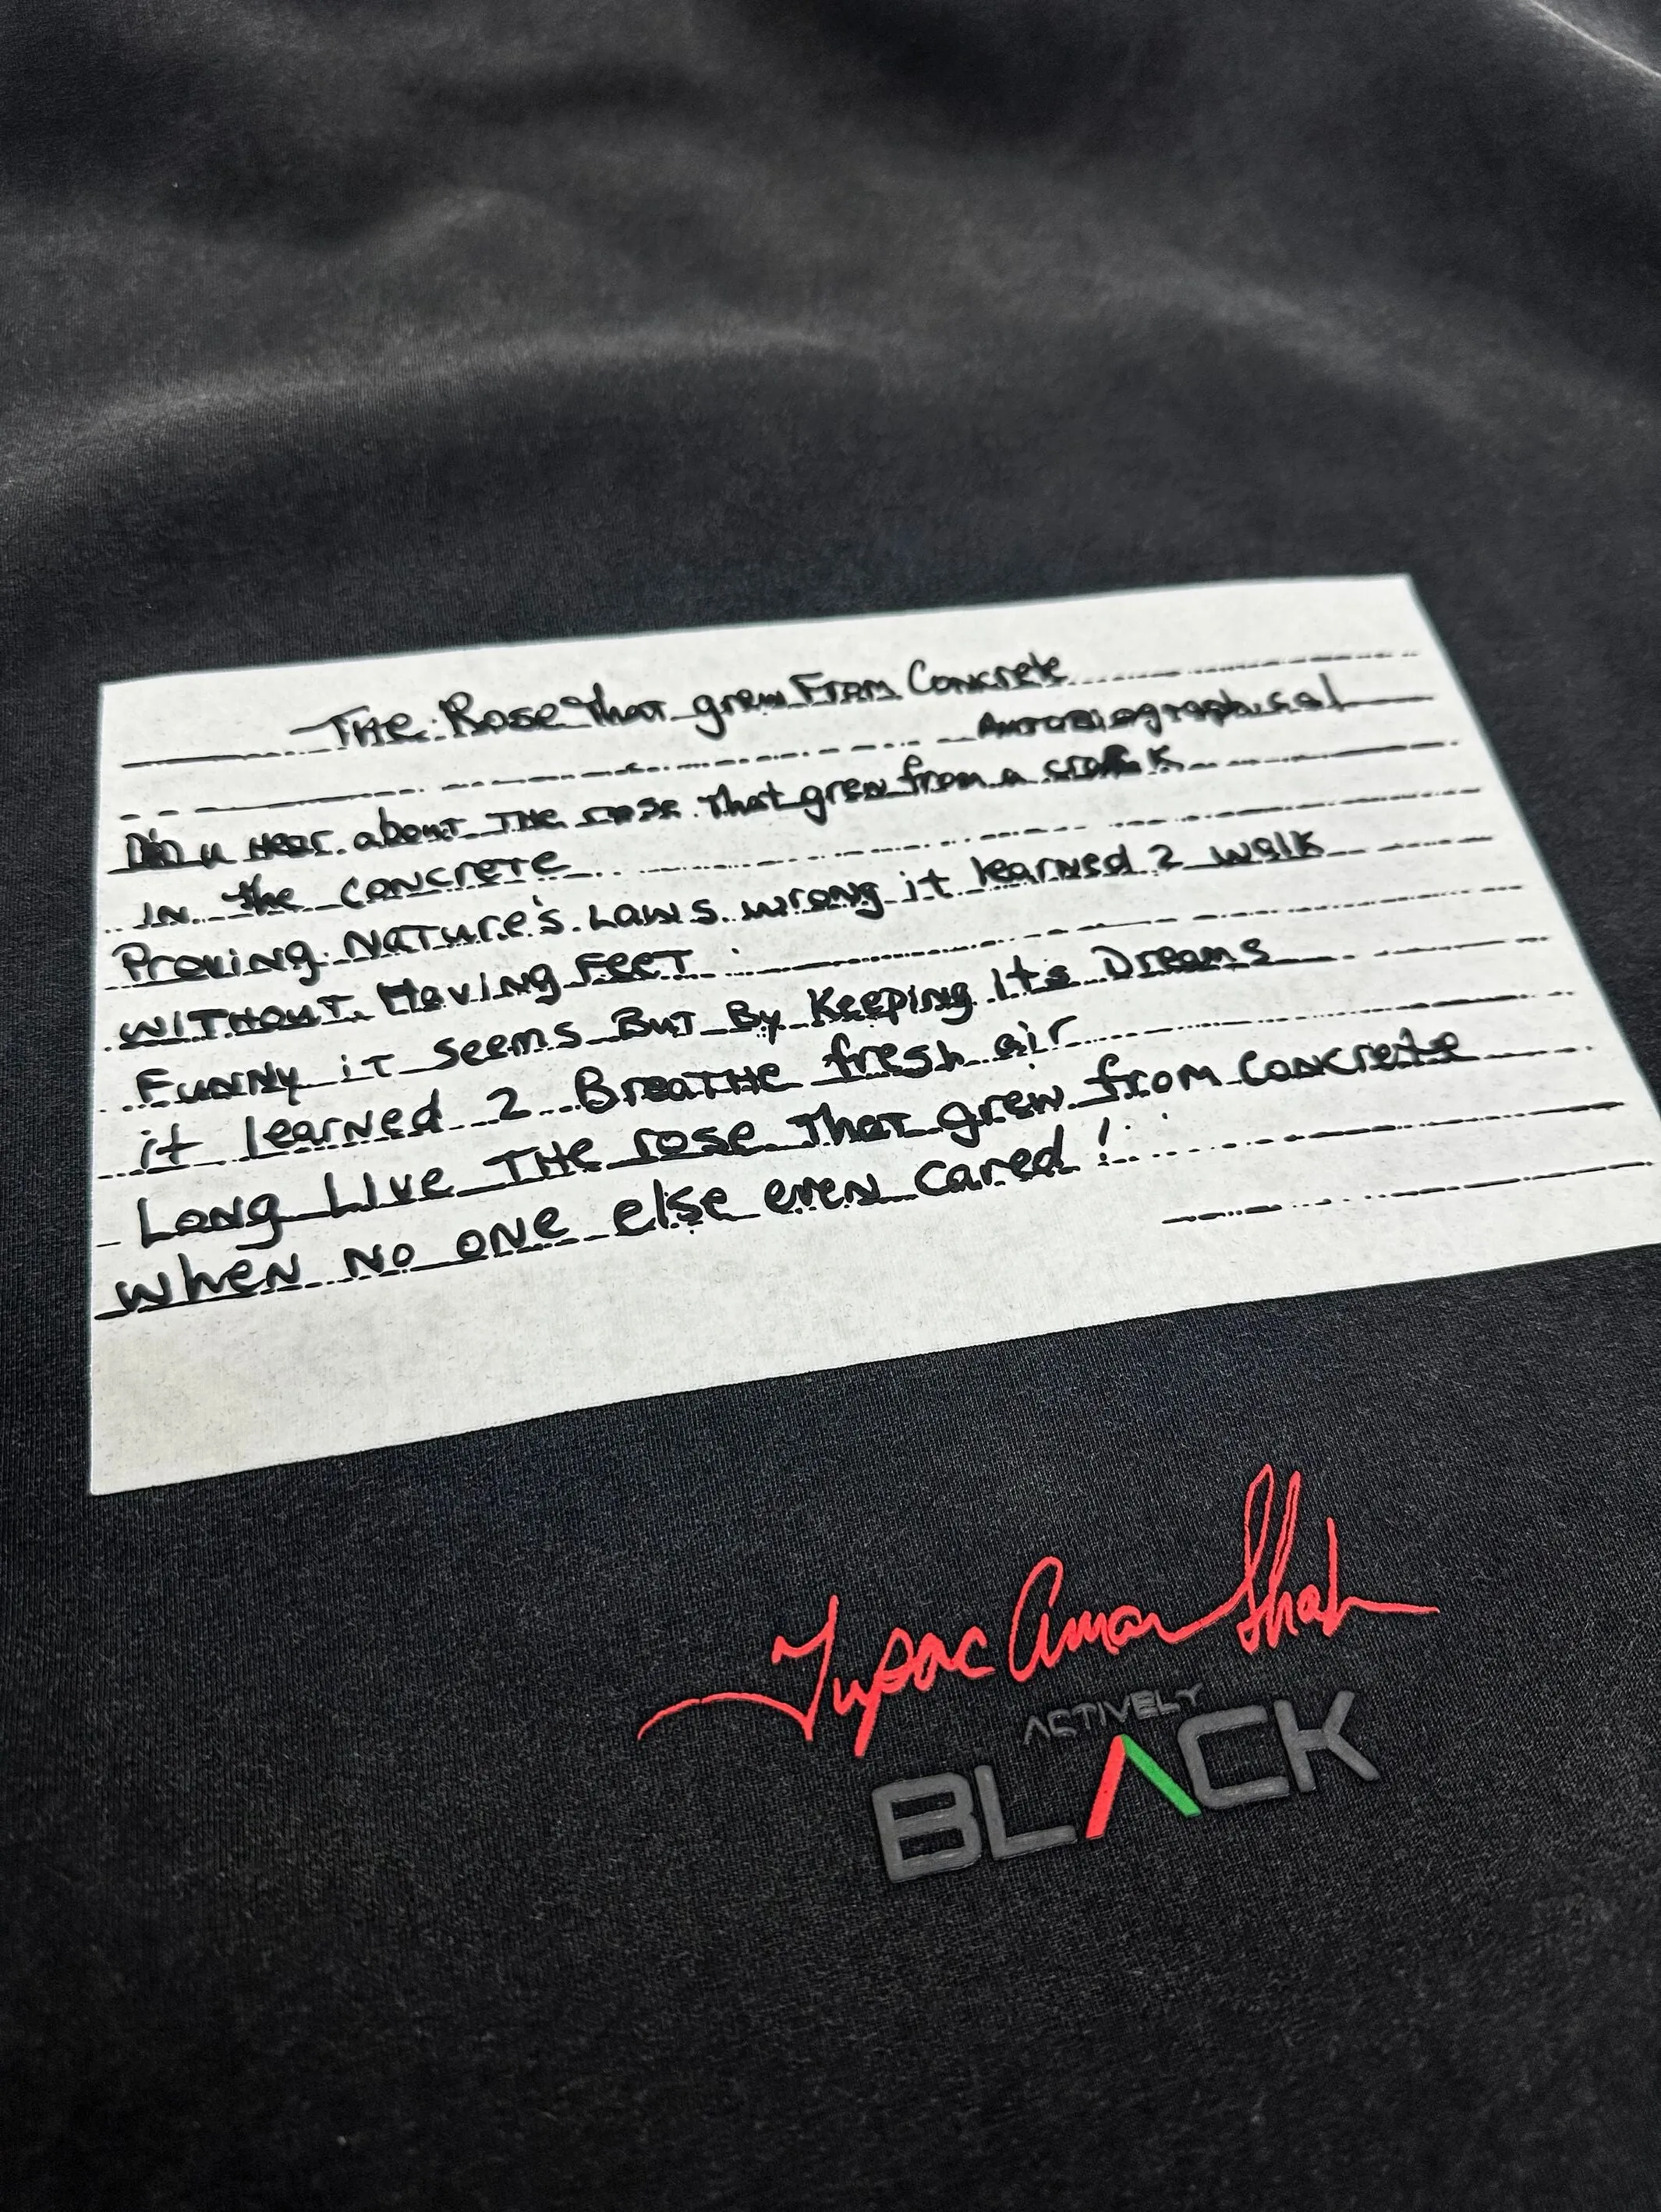 THE Rose That grew From Concrete
Autobiographical
Did u Hear about THE rose that grew from a crack
IN the CONCRETE
Proving NATURE's LAWS wrong it learned 2 walk
WITHOUT Having FEET
Funny iT seems But By Keeping its Dreams
it learned 2 BreaTHe fresh air
Long Live THE rose That grew from concrete
when No one else even cared!
Tupac Amar Shak
ACTIVELY
BLACK